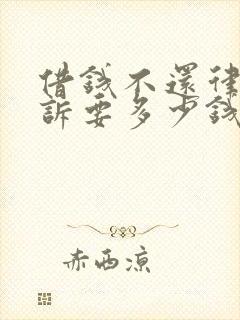 借錢不還律
訴要多少錢
赤西凉